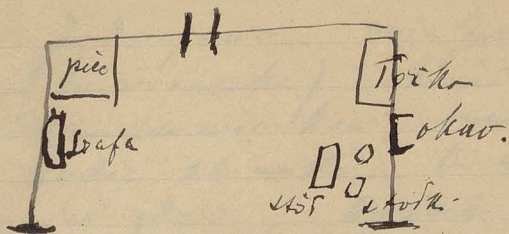 piec
Łóżko
szafa
okno.
stół stołki.